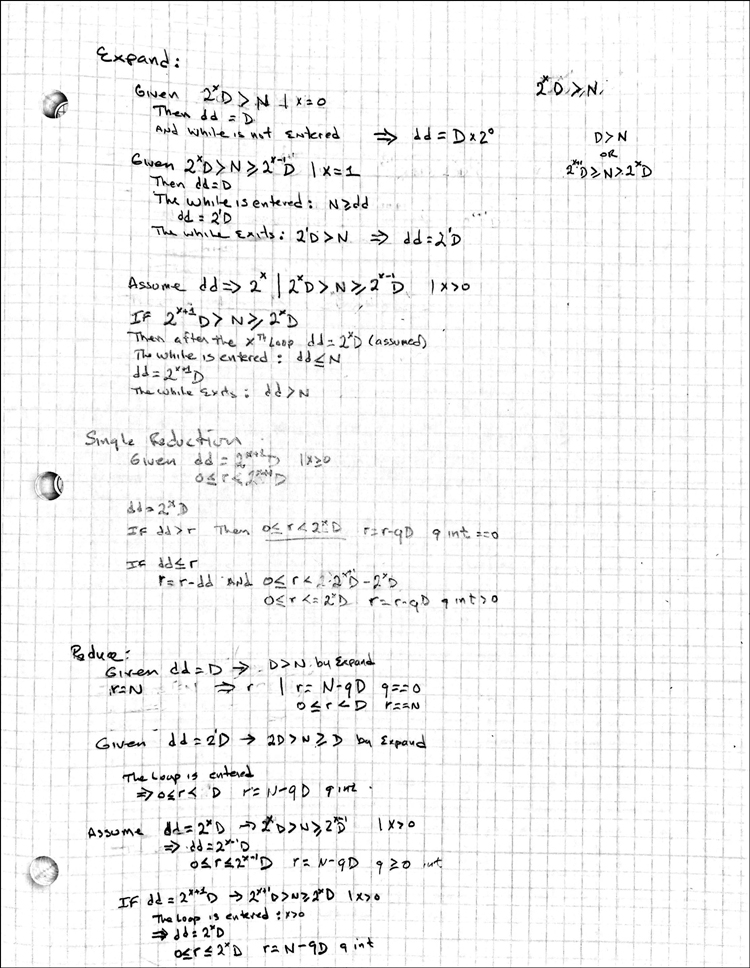 Expand:
2^x D ≥ N.
Given 2^x D > N | x=0
Then dd = D
AND while is not entered ⇒ dd = D×2^0
D>N
OR
2^(x+1) D ≥ N > 2^x D
Given 2^x D > N ≥ 2^(x-1) D | x=1
Then dd=D
The while is entered: N≥dd
dd = 2^1 D
The while Exits: 2^1 D > N ⇒ dd=2^1 D
Assume dd ⇒ 2^x | 2^x D > N ≥ 2^(x-1) D | x>0
IF 2^(x+1) D > N ≥ 2^x D
Then after the x^Th Loop dd=2^x D (assumed)
The while is entered: dd≤N
dd=2^(x+1) D
The while Exits: dd>N
Single Reduction
Given dd = 2^(x+1) D | x≥0
0≤r<2^(x+1) D
dd=2^x D
IF dd>r Then 0≤r<2^x D r=r-qD q int ==0
IF dd≤r
r=r-dd AND 0≤r<2·2^x D-2^x D
0≤r<=2^x D r=r-qD q int>0
Reduce:
Given dd=D → D>N by Expand
r=N ⇒ r | r= N-qD q==0
0≤r<D r==N
Given dd=2^1 D → 2D>N≥D by Expand
The Loop is entered
⇒ 0≤r< D r= N-qD q int.
Assume dd=2^x D → 2^x D>N≥2^(x-1) D | x>0
⇒ dd=2^(x-1) D
0≤r≤2^(x-1) D r= N-qD q≥0 int
IF dd=2^(x+1) D → 2^(x+1) D>N≥2^x D | x>0
The Loop is entered: x>0
⇒ dd=2^x D
0≤r≤2^x D r=N-qD q int